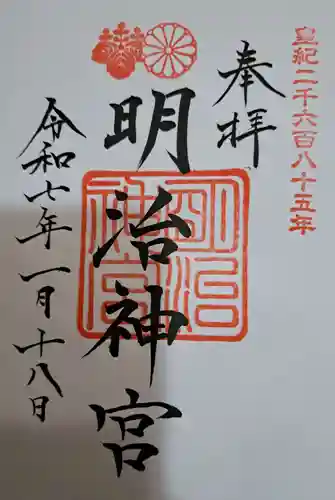 皇紀二千六百八十五年
奉拝
明治神宮
明治
神宮
令和七年一月十八日